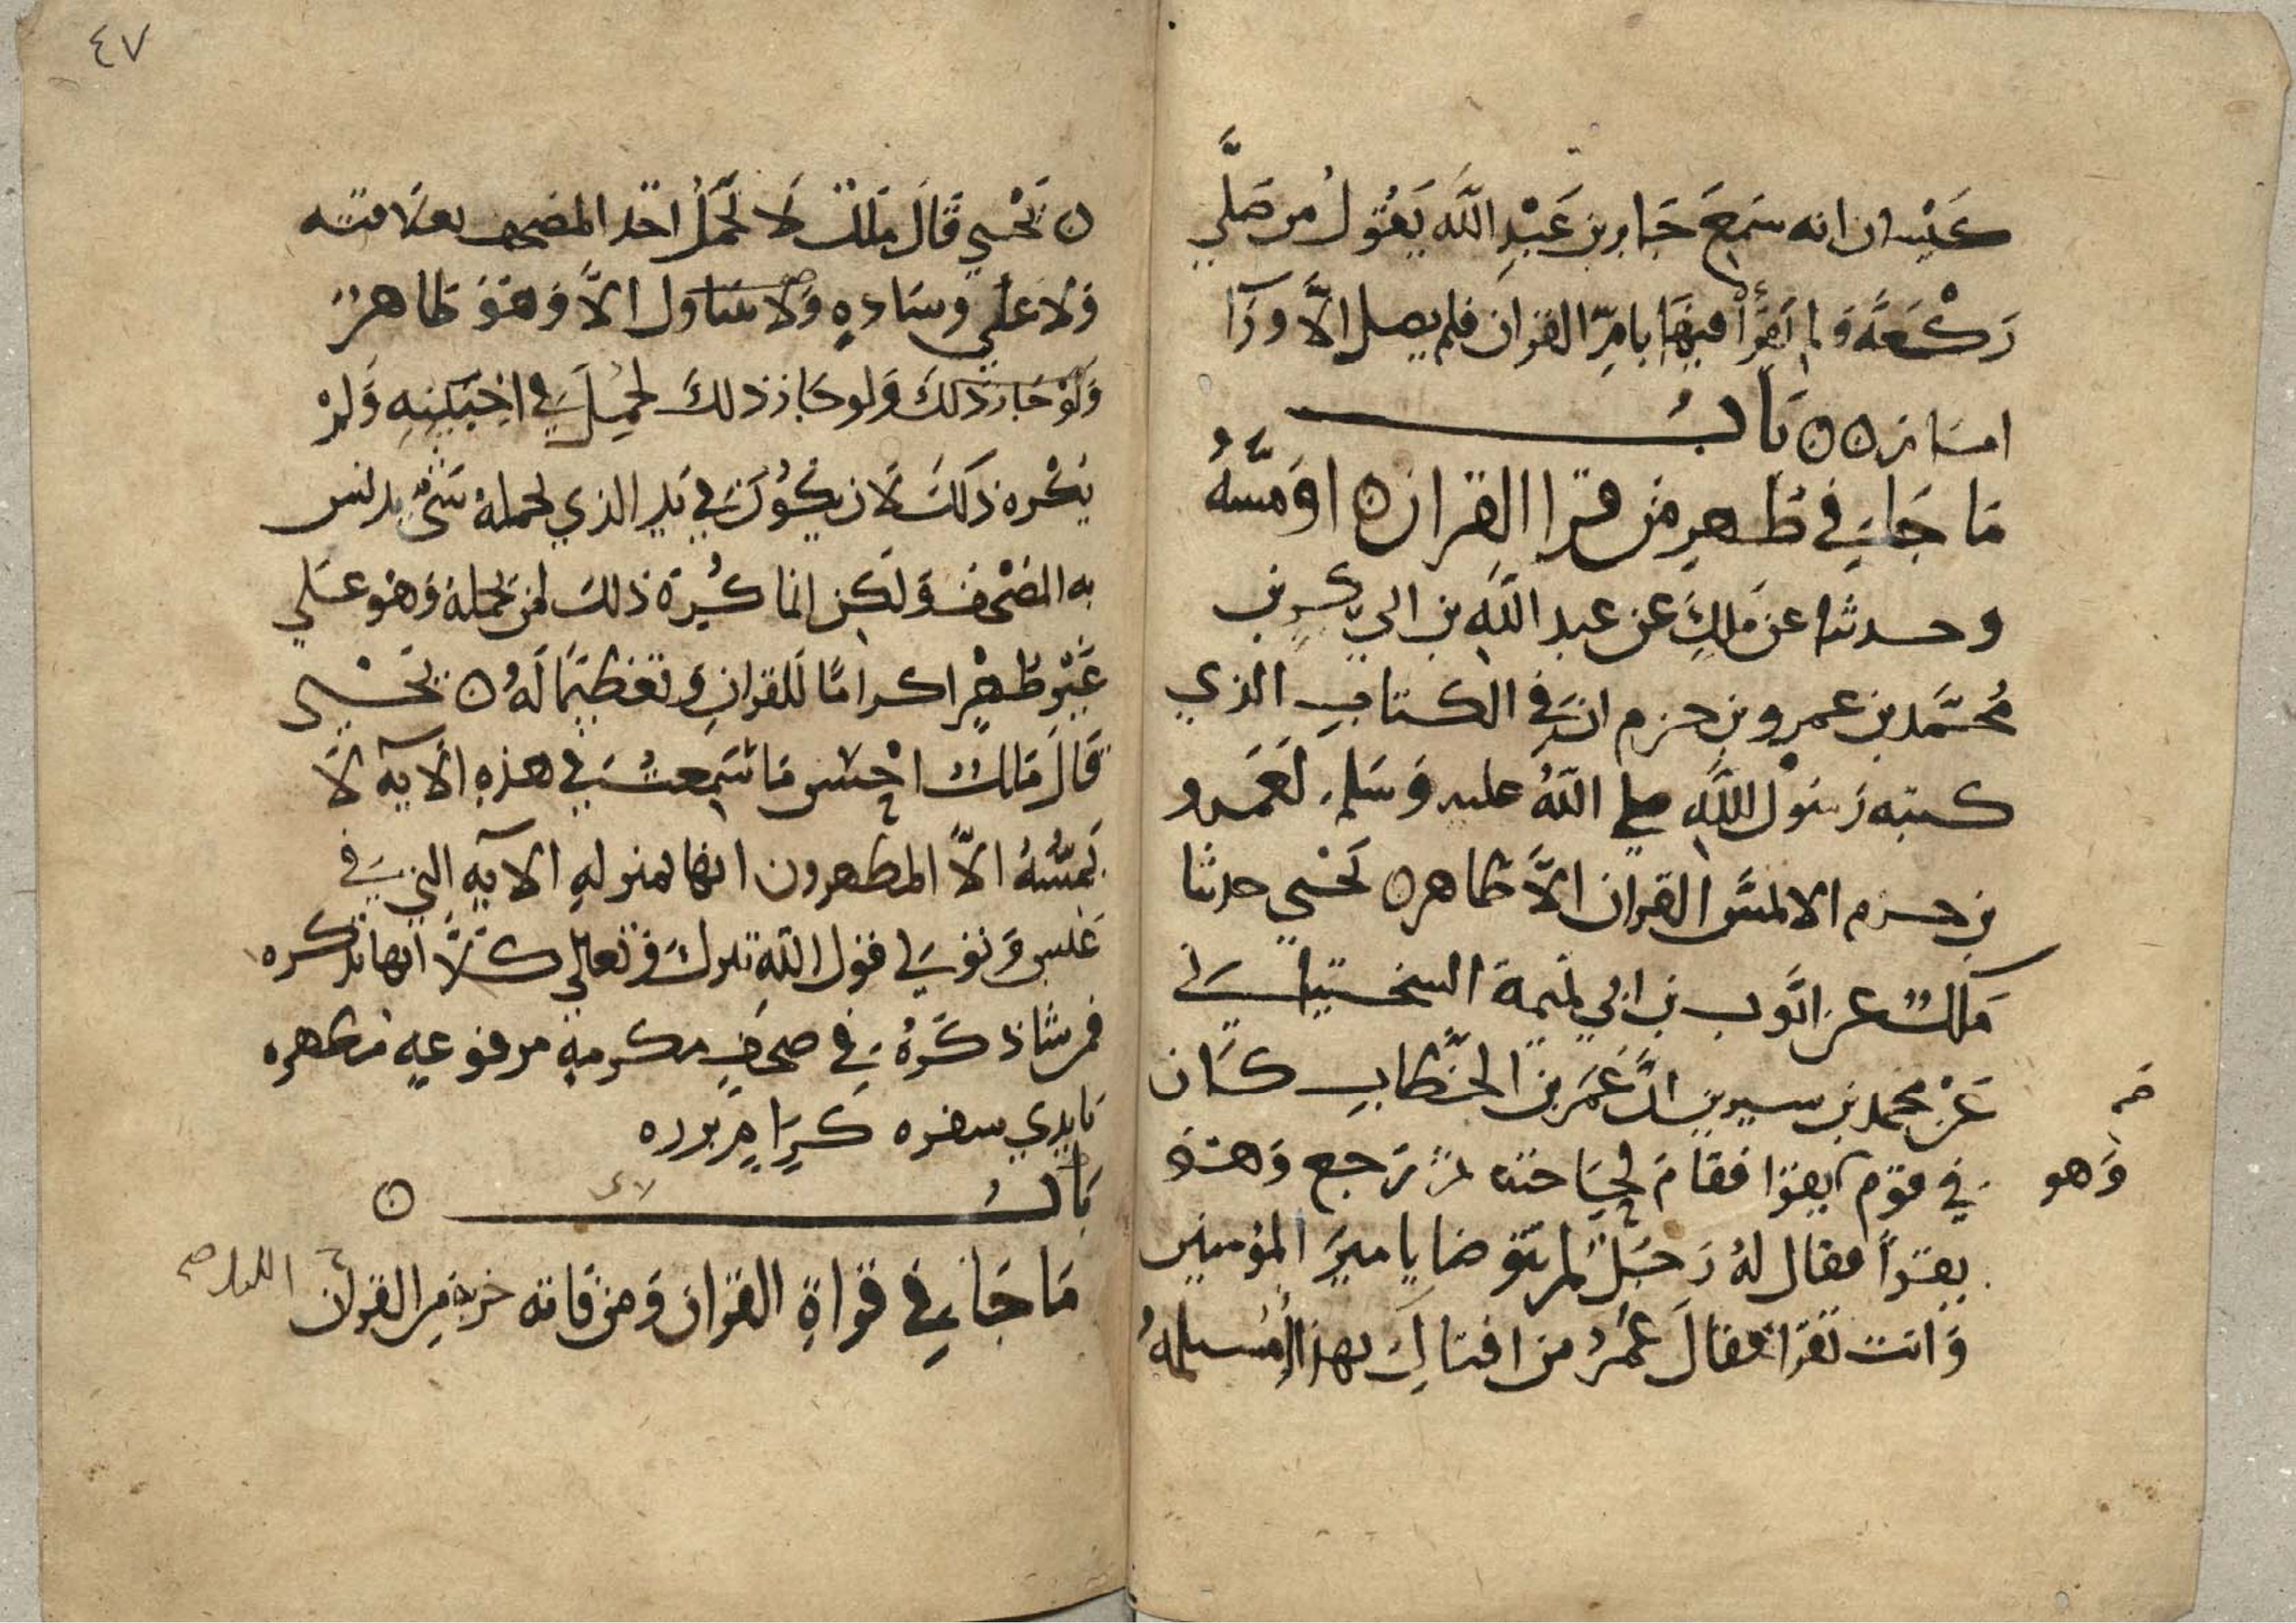 كيسان انه سمع جابر بن عبد الله يقول من صلي
ركعة ولم يقرأ فيها بام القران فلم يصل الا ورآ
امام ن ن باب
ما جاء في طهر من قرا القران ن او مسه
وحدثنا عن ملك عن عبد الله بن ابي بكر بن
محمد بن عمرو بن حزم ان في الكتاب الذي
كتبه رسول الله صلى الله عليه وسلم لعمرو
بن حزم الا يمس القران الا طاهر ن يحيي حدثنا
ملك عن ايوب بن ابي تميمة السختياني
عن محمد بن سيرين ان عمر بن الخطاب كان
في قوم يقرا فقام لحاجته ثم رجع وهو
وهو
يقرأ فقال له رجل لم تتوضا يا مير المؤمنين
وانت تقرا فقال عمر من افتاك بهذا أمسيلمة
٤٧
ن يحيي قال ملك لا يحمل احد المصحف بعلاقته
ولا علي وساده ولا يتناول الا وهو طاهر
ولو جاز ذلك ولو جاز ذلك لحمل في اخبيته ولم
يكره ذلك لان يكون في يد الذي يحمله شي يدنس
به المصحف ولكن انما كره ذلك لمن يحمله وهو علي
غير طهر اكراما للقران وتعظيما له ن يحيى
قال ملك احسن ما سمعت في هذه الآية لا
يمسه الا المطهرون انها بمنزلة الآية التي في
عبس وتولي قول الله تبرك وتعالي كلا انها تذكره
فمن شا ذكره في صحف مكرمة مرفوعة مطهره
بايدي سفره كرام برره
باب ن
ما جاء في قراة القران ومن فاته حزبه من القران الليل صح